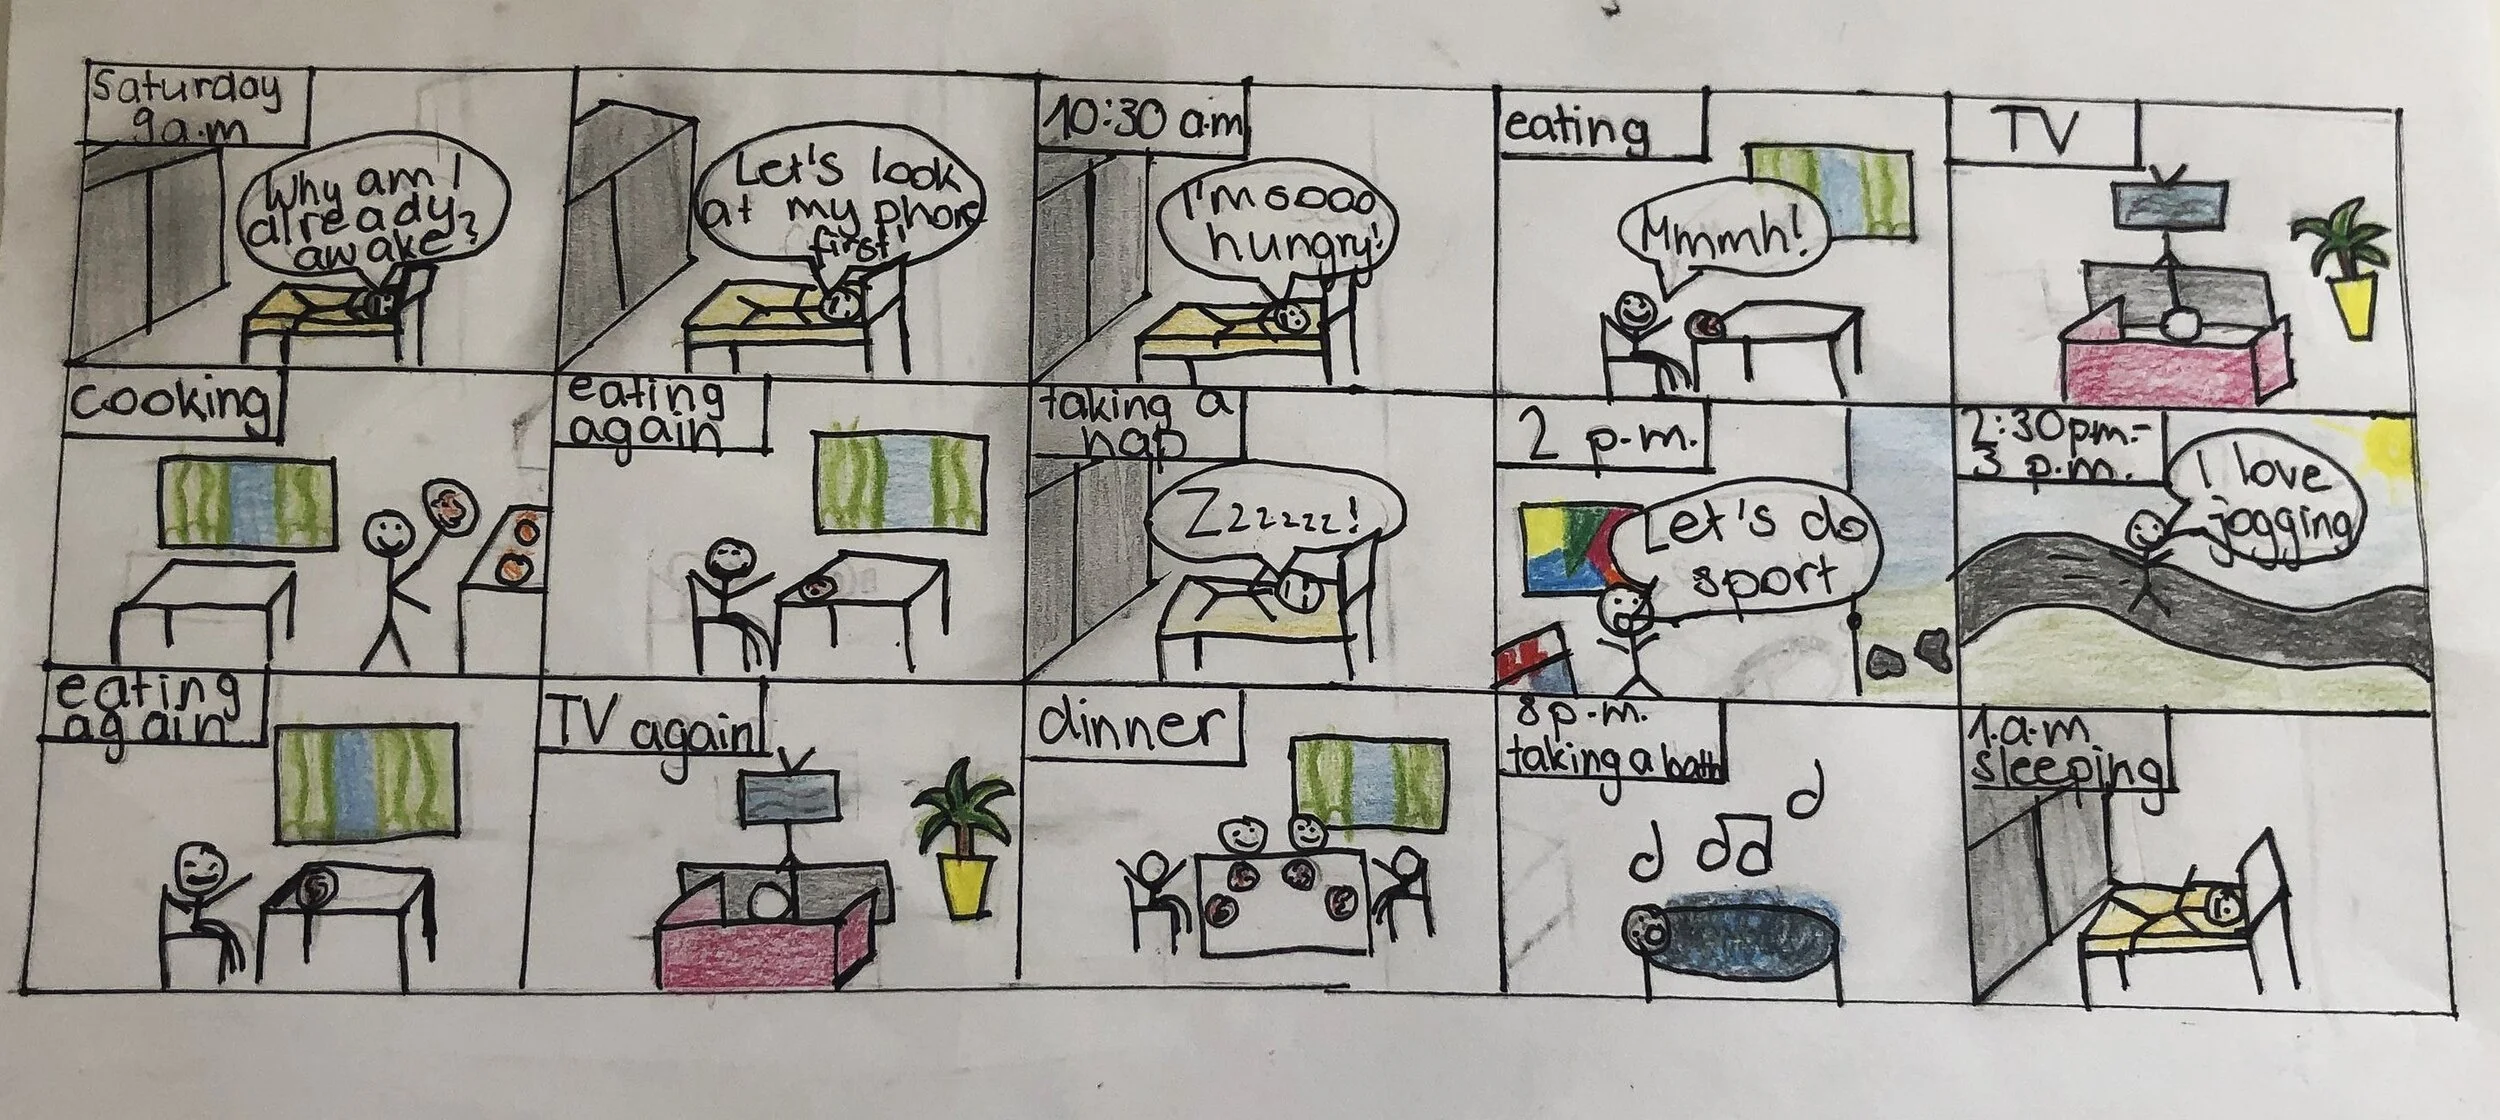 Saturday
9a.m
Why am I
already
awake?
Let's look
at my phone
first!
10:30 a.m
I'm sooo
hungry!
eating
Mmmh!
TV
cooking
eating
again
taking a
nap
Zzzzzz!
2 p.m.
Let's do
sport
2:30pm.-
3 p.m.
I love
jogging
eating
again
TV again
dinner
8p.m.
taking a bath
1.a.m
sleeping